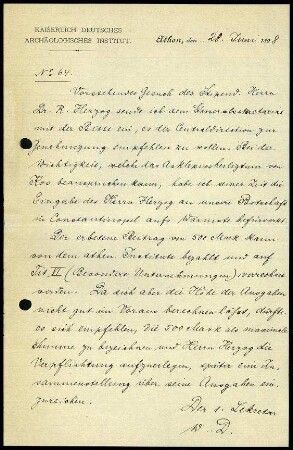 KAISERLICH DEUTSCHES
ARCHÄOLOGISCHES INSTITUT.
Athen, den 28. Juni 1908
No 64.
Vorstehendes Gesuch des Stipend. Herrn
Dr. R. Herzog sende ich dem Generalsekretariat
mit der Bitte ein, es der Centraldirection zur
Genehmigung empfehlen zu wollen. Bei der
Wichtigkeit, welche das Asklepiosheiligtum von
Kos beanspruchen kann, habe ich seiner Zeit die
Eingabe des Herrn Herzog an unsere Botschaft
in Constantinopel aufs Wärmste befürwortet.
Der erbetene Beitrag von 500 Mark kann
von dem athen. Institute bezahlt und auf
Tit. II (Besondere Untersuchungen) verrechnet
werden. Da sich aber die Höhe der Ausgaben
nicht gut im Voraus berechnen lässt, dürfte
es sich empfehlen, die 500 Mark als maximale
Summe zu bezeichnen und Herrn Herzog die
Verpflichtung aufzuerlegen, später eine Zu-
sammenstellung über seine Ausgaben ein-
zureichen.
Der 1. Sekretar
W. D.